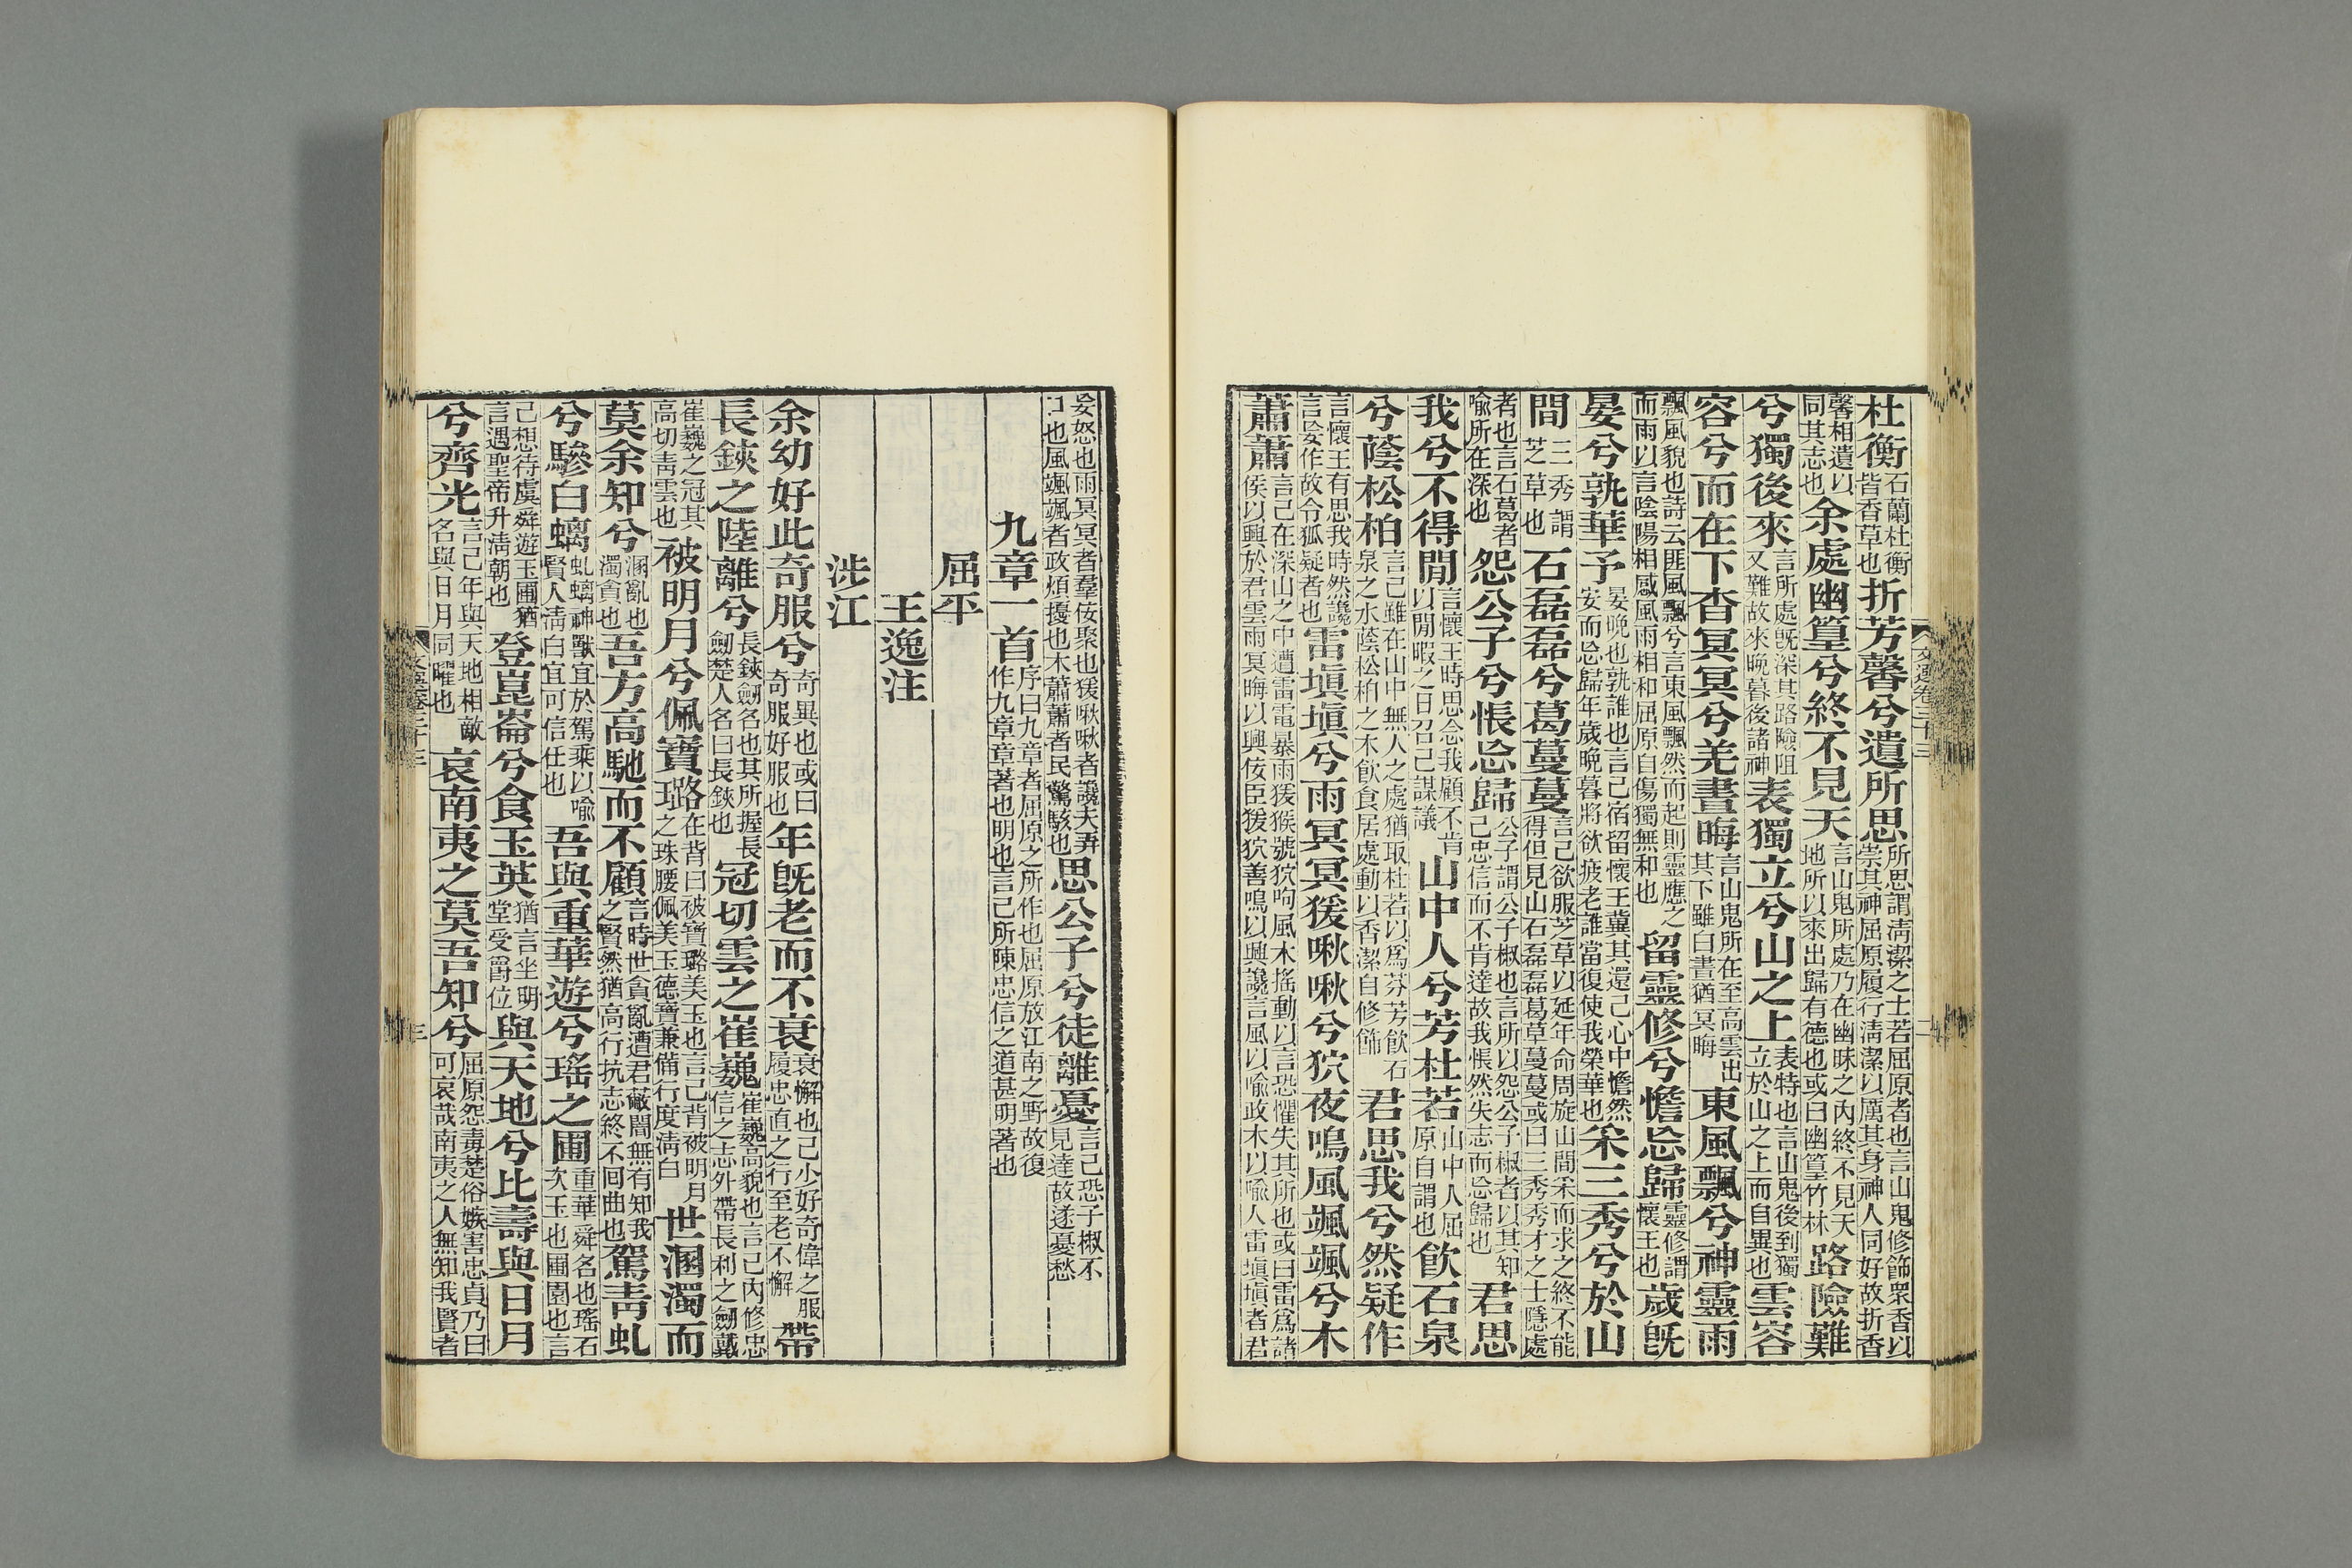 杜衡石蘭杜衡皆香草也折芳馨兮遺所思所思謂清潔之士若屈原者也言山鬼修飾衆香以崇其神屈原履行清潔以厲其身神人同好故折香
馨相遺以同其志也余處幽篁兮終不見天言山鬼所處乃在幽昧之內終不見天地所以來出歸有德也或曰幽篁竹林路險難
兮獨後來言所處旣深其路險阻又難故來晚暮後諸神表獨立兮山之上表特也言山鬼後到獨立於山之上而自異也雲容
容兮而在下杳冥冥兮羌晝晦言山鬼所在至高雲出其下雖白晝猶冥晦東風飄兮神靈雨
飄風貌也詩云匪風飄兮言東風飄然而起則靈應之而雨以言陰陽相感風雨相和屈原自傷獨無和也留靈修兮憺忘歸靈修謂懷王也歲旣
晏兮孰華予晏晚也孰誰也言己宿留懷王冀其還己心中憺然安而忘歸年歲晚暮將欲疲老誰當復使我榮華也采三秀兮於山
間三秀謂芝草也石磊磊兮葛蔓蔓言己欲服芝草以延年命周旋山間采而求之終不能得但見山石磊磊葛草蔓蔓或曰三秀秀才之士隱處
者也言石葛者喩所在深也怨公子兮悵忘歸公子謂公子椒也言所以怨公子椒者以其知己忠信而不肯達故我悵然失志而忘歸也君思
我兮不得閒言懷王時思念我顧不肯以閒暇之日召己謀議山中人兮芳杜若山中人屈原自謂也飮石泉
兮蔭松柏言己雖在山中無人之處猶取杜若以爲芬芳飮石泉之水蔭松柏之木飮食居處動以香潔自修飾君思我兮然疑作
言懷王有思我時然讒言妄作故令狐疑者也雷塡塡兮雨冥冥猨啾啾兮狖夜鳴風颯颯兮木
蕭蕭言己在深山之中遭雷電暴雨猨猴號狖呴風木搖動以言恐懼失其所也或曰雷爲諸侯以興於君雲雨冥晦以興佞臣猨狖善鳴以興讒言風以喩政木以喩人雷塡塡者君
妄怒也雨冥冥者羣佞聚也猨啾啾者讒夫弄口也風颯颯者政煩擾也木蕭蕭者民驚駭也思公子兮徒離憂言己恐子椒不見達故遂憂愁
九章一首序曰九章者屈原之所作也屈原放江南之野故復作九章章著也明也言己所陳忠信之道甚明著也
屈平
王逸注
涉江
余幼好此奇服兮奇異也或曰奇服好服也年旣老而不衰衰懈也己少好奇偉之服履忠直之行至老不懈帶
長鋏之陸離兮長鋏劒名也其所握長劒楚人名曰長鋏也冠切雲之崔巍崔巍高貌也言己內修忠信之志外帶長利之劒戴
崔巍之冠其高切靑雲也被明月兮佩寶璐在背曰被寶璐美玉也言己背被明月之珠腰佩美玉德寶兼備行度清白世溷濁而
莫余知兮溷亂也濁貪也吾方高馳而不顧言時世貪亂遭君蔽闇無有知我之賢然猶高行抗志終不回曲也駕靑虬
兮驂白螭虬螭神獸宜於駕乘以喩賢人清白宜可信任也吾與重華遊兮瑤之圃重華舜名也瑤石次玉也圃園也言
己想待虞舜遊玉圃猶言遇聖帝升清朝也登崑崙兮食玉英猶言坐明堂受爵位與天地兮比壽與日月
兮齊光言己年與天地相敵名與日月同曜也哀南夷之莫吾知兮屈原怨毒楚俗嫉害忠貞乃曰可哀哉南夷之人無知我賢者